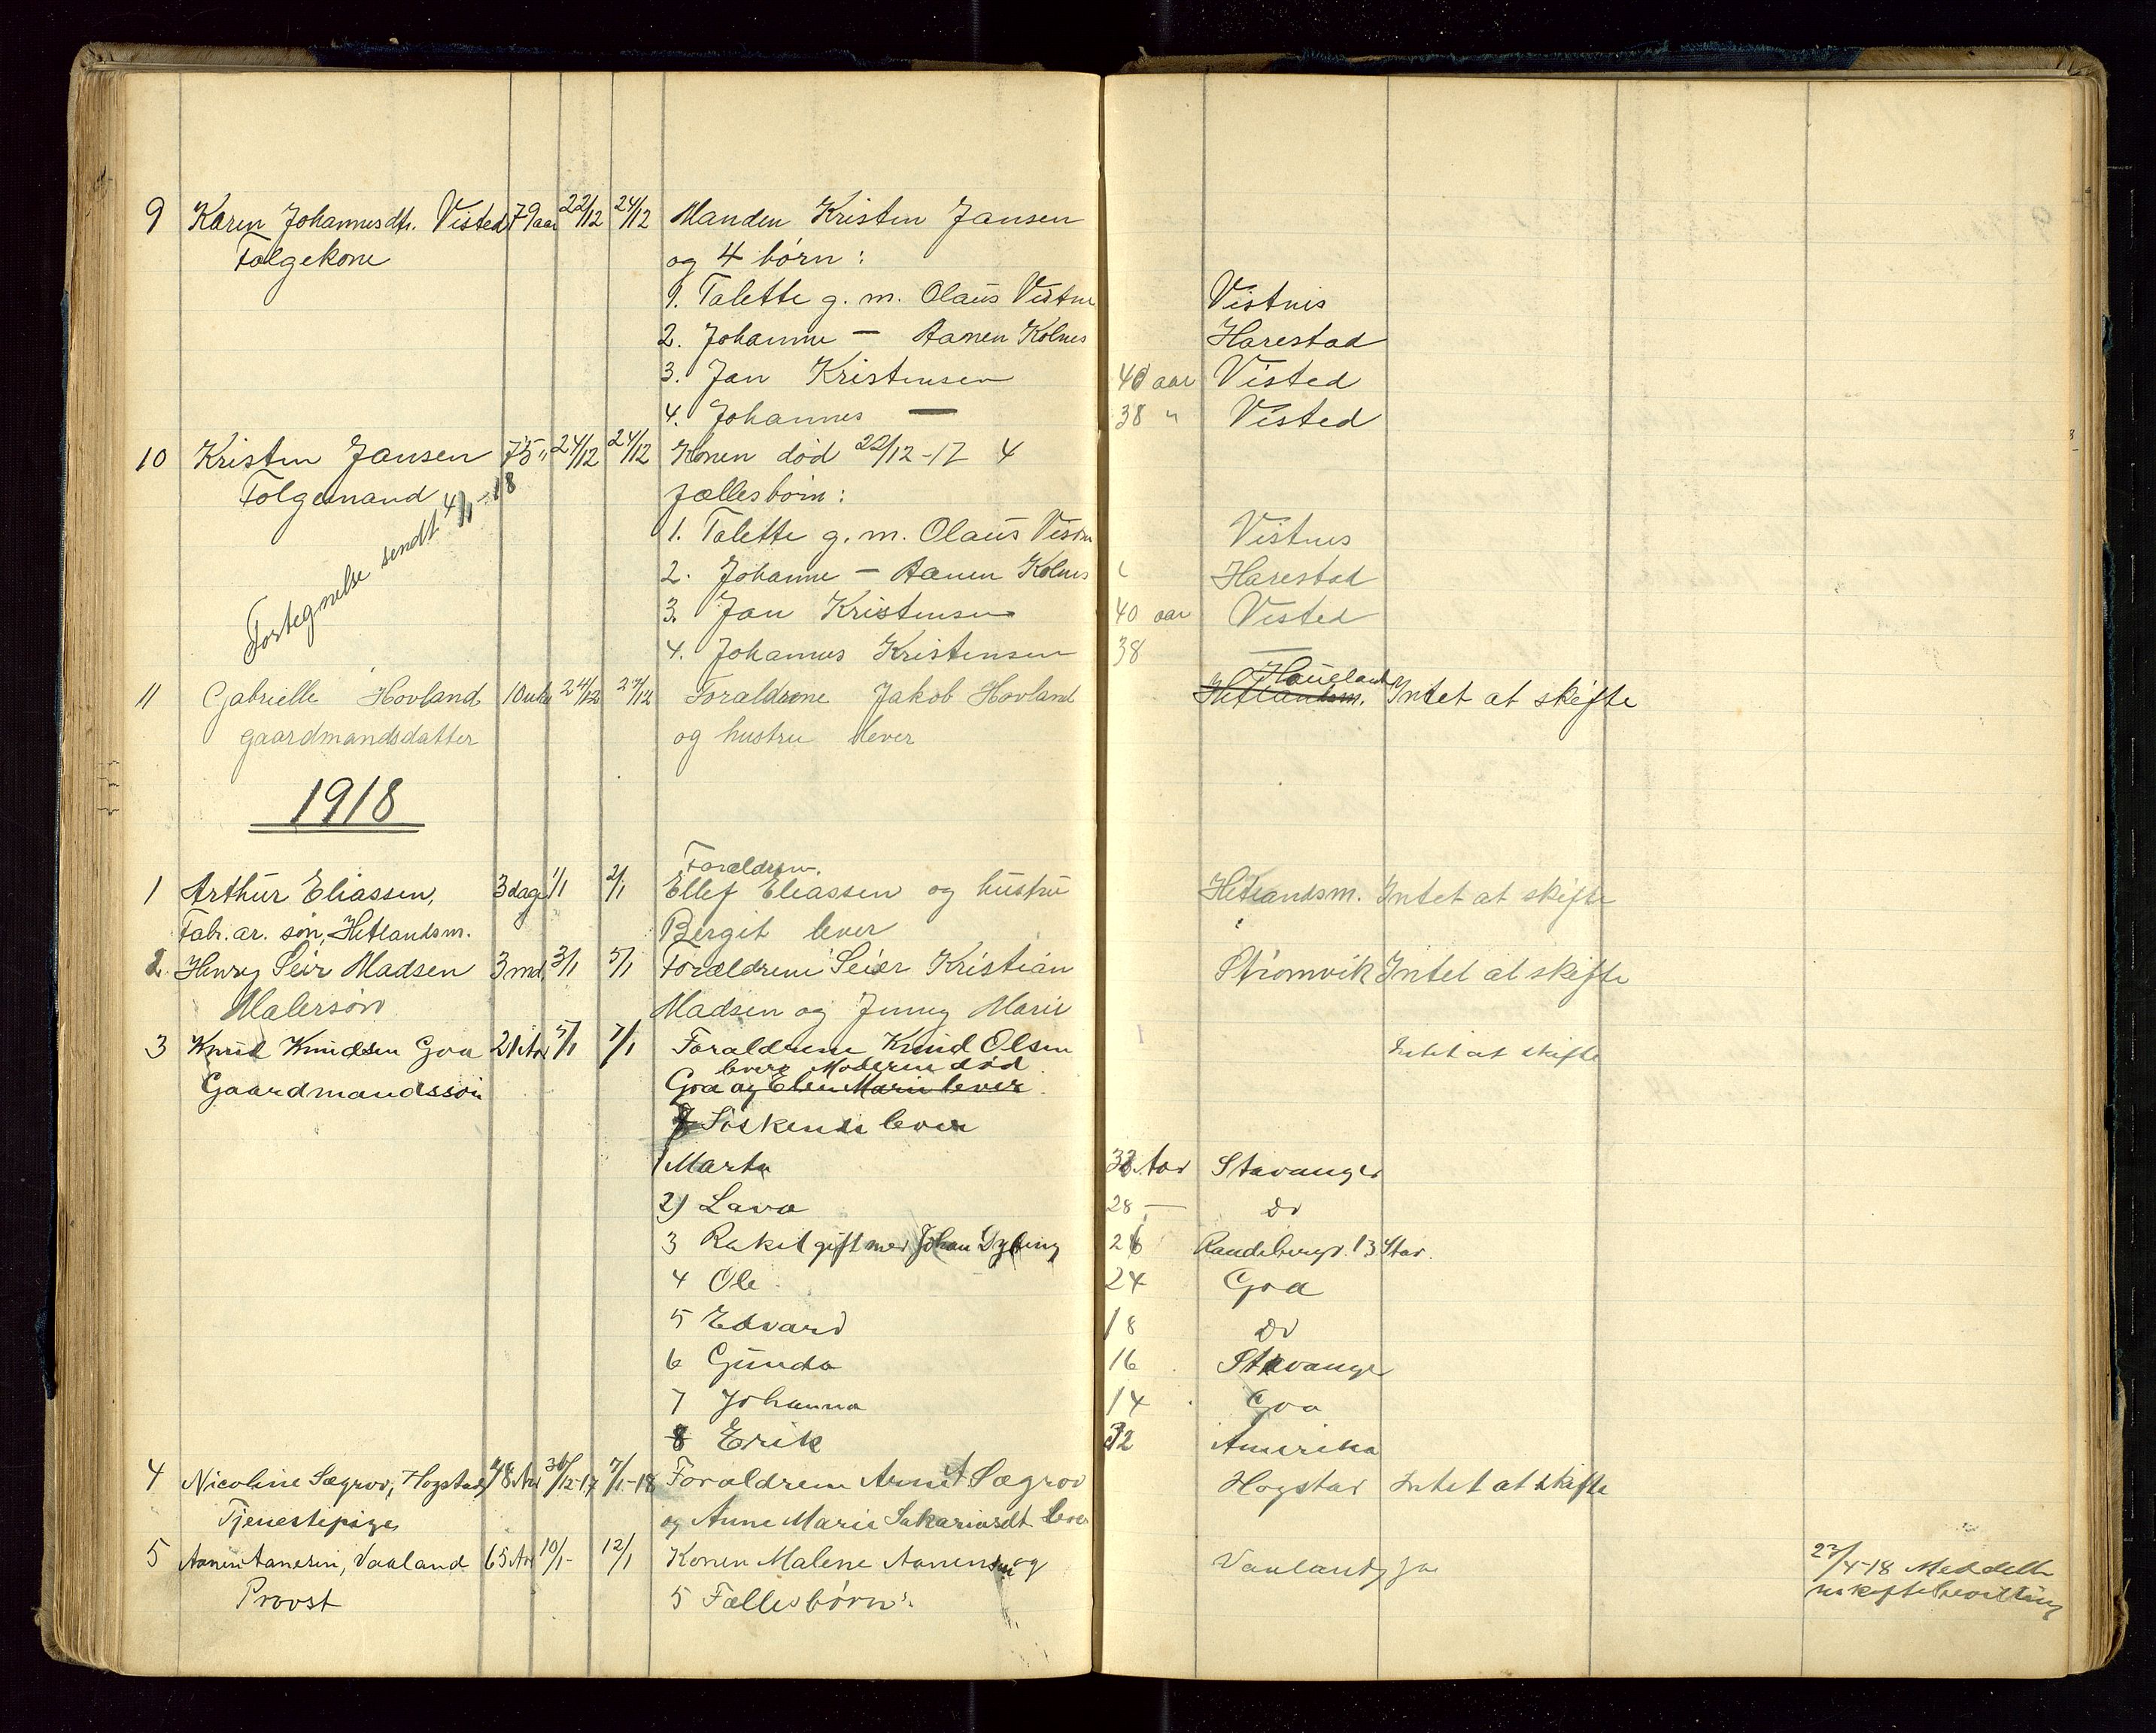 9 Karen Johannesdtr. Visted 79 aar 22/12 24/12 Manden Kristen Jansen
Følgekone og 4 børn:
1. Talette g. m. Olaus Vistnes Vistnes
2. Johanne — Aanen Kolnes Harestad
3. Jan Kristensen 40 aar Visted
4. Johannes — 38 " Visted
10 Kristen Jansen 75 " 24/12 24/12 Konen død 22/12-17 4
Følgemand fællesbørn:
Fortegnelse sendt 4/1-18
1. Talette g. m. Olaus Vistnes Vistnes
2. Johanne — Aanen Kolnes Harestad
3. Jan Kristensen 40 aar Visted
4. Johannes Kristensen 38 —
11 Gabrielle Hovland 10 uker 24/12 27/12 Forældrene Jakob Hovland Hetlandsm. Haueland Intet at skifte
gaardmandsdatter og hustru lever
1918
Forældrene
1 Arthur Eliassen, 3 dage 1/1 2/1 Ellef Eliassen og hustru Hetlandsm. Intet at skifte
Fabr. ar. søn, Hetlandsm. Bergit lever
2. Henry Seir Madsen 3 md. 3/1 5/1 Forældrene Seier Kristian Strømvik Intet at skifte
Malersøn Madsen og Jenny Marie
3 Knud Knudsen Goa 21 Aar 5/1 7/1 Forældrene Knud Olsen Intet at skifte
lever Moderen død
Gaardmandssøn Goa og Elen Marie lever
8 Søskende lever
1 Marta 33 Aar Stavanger
2) Lava 28 — do
3 Rakel gift med Johan Dybing 26 Randebergv. 13 Stav.
4 Ole 24 Goa
5 Edvard 18 do
6 Gunda 16 Stavanger
7 Johanna 14 Goa
8 Erik 32 Amerika
4 Nicoline Sægrov, Hogstad 48 Aar 30/12-17 7/1-18 Forældrene Arnet Sægrov Hogstad Intet at skifte
Tjenestepige og Anne Marie Sakariasdt lever
5 Aanen Aanesen, Vaaland 65 Aar 10/1- 12/1 Konen Malene Aanensen og Vaaland Ja 27/4-18 Meddelt
Provst 5 Fællesbørn: uskiftebevilling